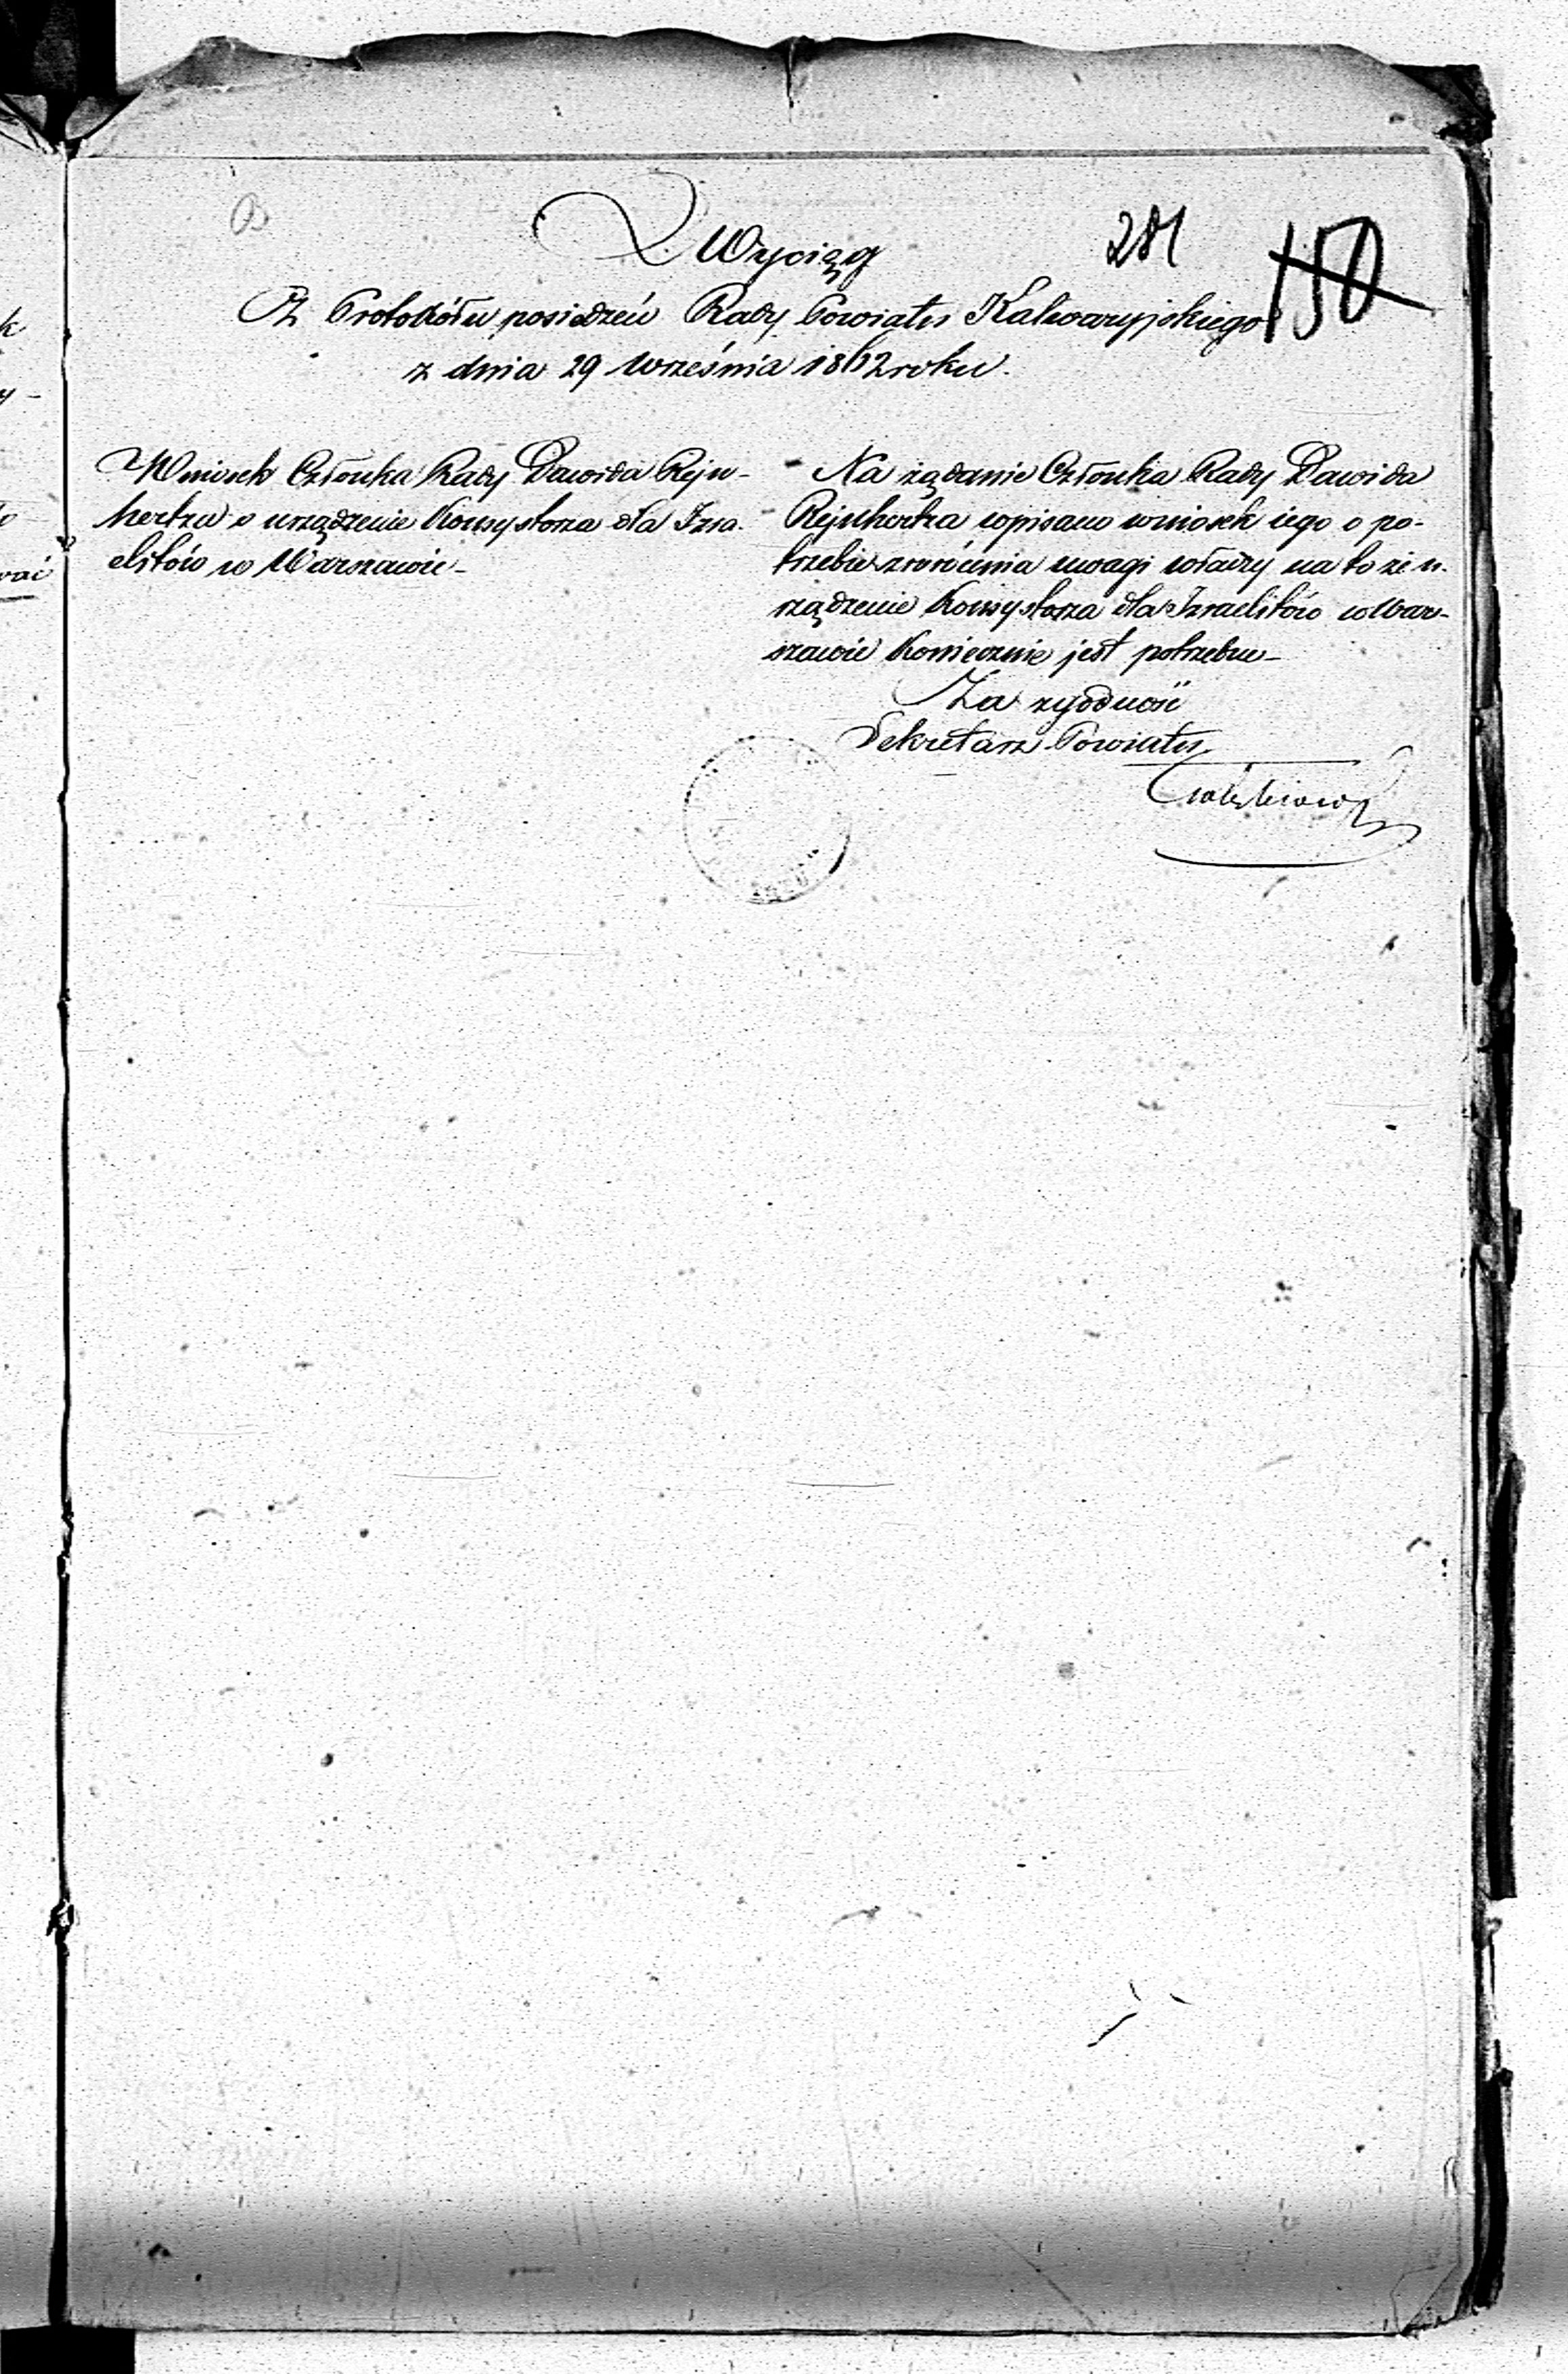 281
150
Wyciąg
Z Protokółu posiedzeń Rady Powiatu Kalwaryjskiego
z dnia 29 Września 1862 roku.
Wniosek Członka Rady Dawida Rejn-
hertza o urządzenie Konsystorza dla Izra-
elitów w Warszawie -
Na żądanie Członka Rady Dawida
Rejnhertza wpisano wniosek iego o po-
trzebie zwrócenia uwagi władzy na to że u-
rządzenie Konsystorza dla Izraelitów w War-
szawie Koniecznie jest potrzebne -
Za zgodność
Sekretarz Powiatu